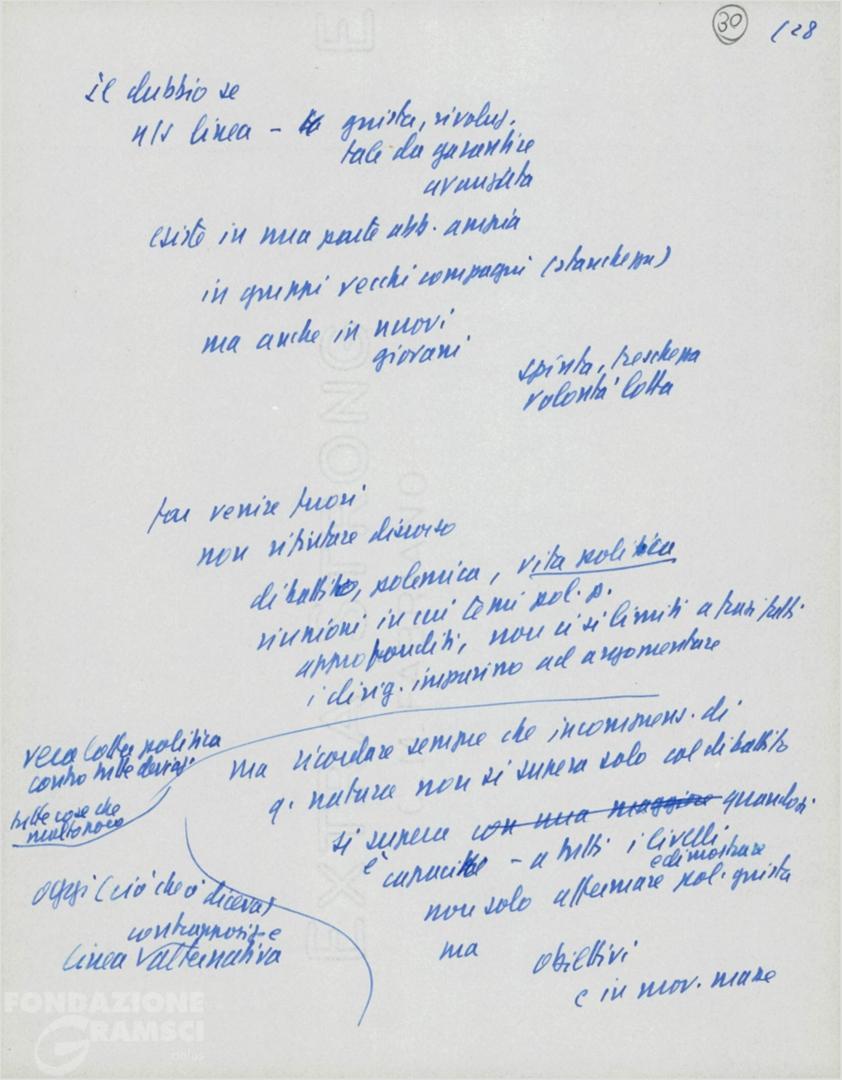 30 128
il dubbio se
n/s linea - giusta, rivoluz.
tale da garantire
avanzata
esiste in una parte abb. ampia
in gruppi vecchi compagni (stanchezza)
ma anche in nuovi
giovani
spinta, freschezza
volontà lotta
far venire fuori
non rifiutare discorso
dibattito, polemica, vita politica
riunioni in cui temi pol. p.
approfonditi, non ci si limiti a frasi fatte
i dirig. imparino ad argomentare
vera lotta politica
contro tutte deviaz.
tutte cose che
molto poco
ma ricordare sempre che incomprens. di
q. natura non si supera solo col dibattito
si supera con una maggiore quando si
è capaci - a tutti i livelli
e dimostrare
non solo affermare pol. giusta
ma obiettivi
e in mov. masse
oggi (ciò che o diceva)
contrapposiz-e
linea alternativa
EXTRA STRONG
FONDAZIONE
GRAMSCI
onlus